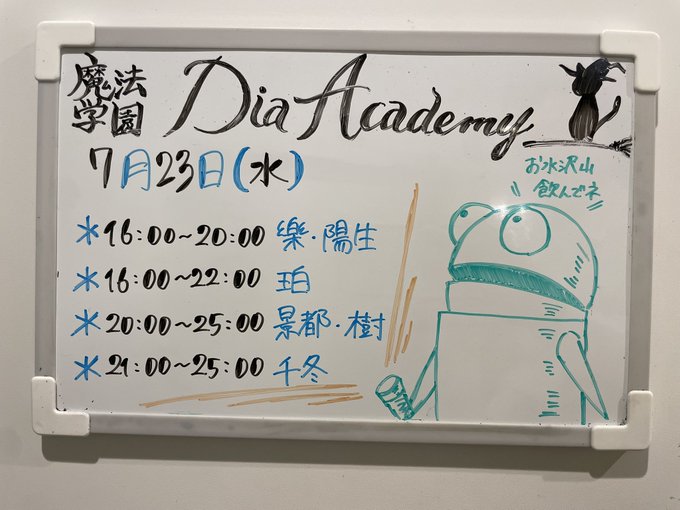 魔法学園 Dia Academy
7月23日(水)
お水沢山
飲んでネ
*16:00~20:00 樂・陽生
*16:00~22:00 珀
*20:00~25:00 景都・樹
*21:00~25:00 千冬